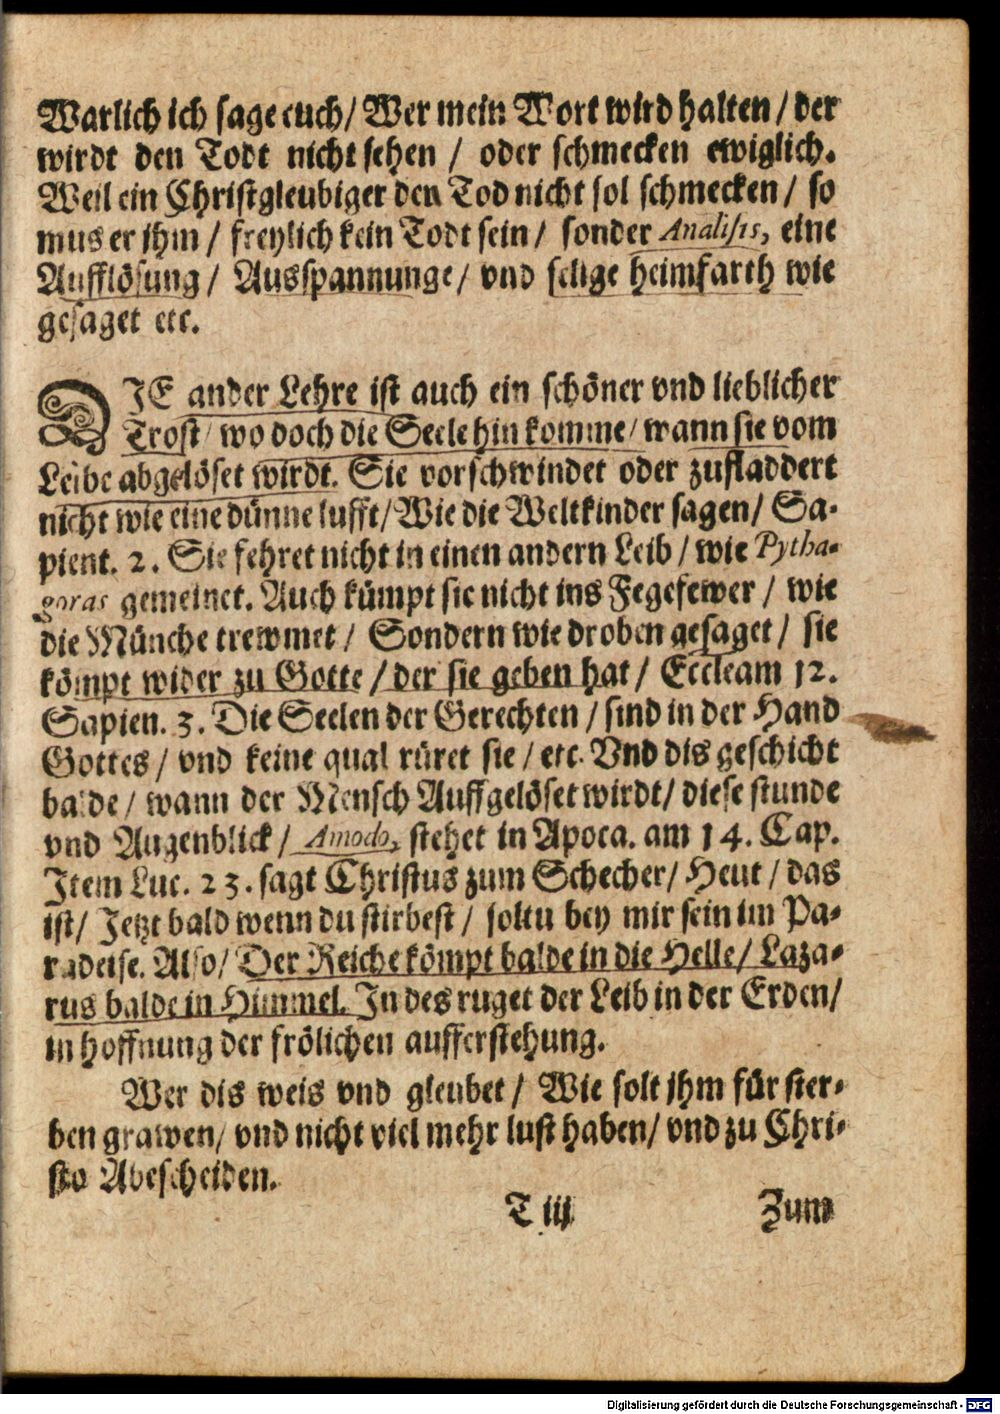 Warlich ich sage euch/ Wer mein Wort wird halten/ der
wirdt den Todt nicht sehen / oder schmecken ewiglich.
Weil ein Christgleubiger den Tod nicht sol schmecken/ so
mus er jhm / freylich kein Todt sein/ sonder Analisis, eine
Aufflösung/ Ausspannunge/ vnd selige heimfarth wie
gesaget etc.
DIE ander Lehre ist auch ein schöner vnd lieblicher
Trost/ wo doch die Seele hin komme/ wann sie vom
Leibe abgelöset wirdt. Sie vorschwindet oder zufladdert
nicht wie eine dünne lufft/ Wie die Weltkinder sagen/ Sa-
pient. 2. Sie fehret nicht in einen andern Leib/ wie Pytha-
goras gemeinet. Auch kümpt sie nicht ins Fegefewer / wie
die Münche trewmet/ Sondern wie droben gesaget/ sie
kömpt wider zu Gotte/ der sie geben hat/ Eccleam 12.
Sapien. 3. Die Seelen der Gerechten / sind in der Hand
Gottes/ vnd keine qual rüret sie/ etc. Vnd dis geschicht
balde/ wann der Mensch Auffgelöset wirdt/ diese stunde
vnd Augenblick/ Amodo, stehet in Apoca. am 14. Cap.
Jtem Luc. 23. sagt Christus zum Schecher/ Heut / das
ist/ Jetzt bald wenn du stirbest / soltu bey mir sein im Pa-
radeise. Also/ Der Reiche kömpt balde in die Helle/ Laza-
rus balde in Himmel. Jn des ruget der Leib in der Erden/
in hoffnung der frölichen aufferstehung.
Wer dis weis vnd gleubet/ Wie solt jhm für ster-
ben grawen/ vnd nicht viel mehr lust haben/ vnd zu Chri-
sto Abescheiden.
T iij Zum
Digitalisierung gefördert durch die Deutsche Forschungsgemeinschaft - DFG